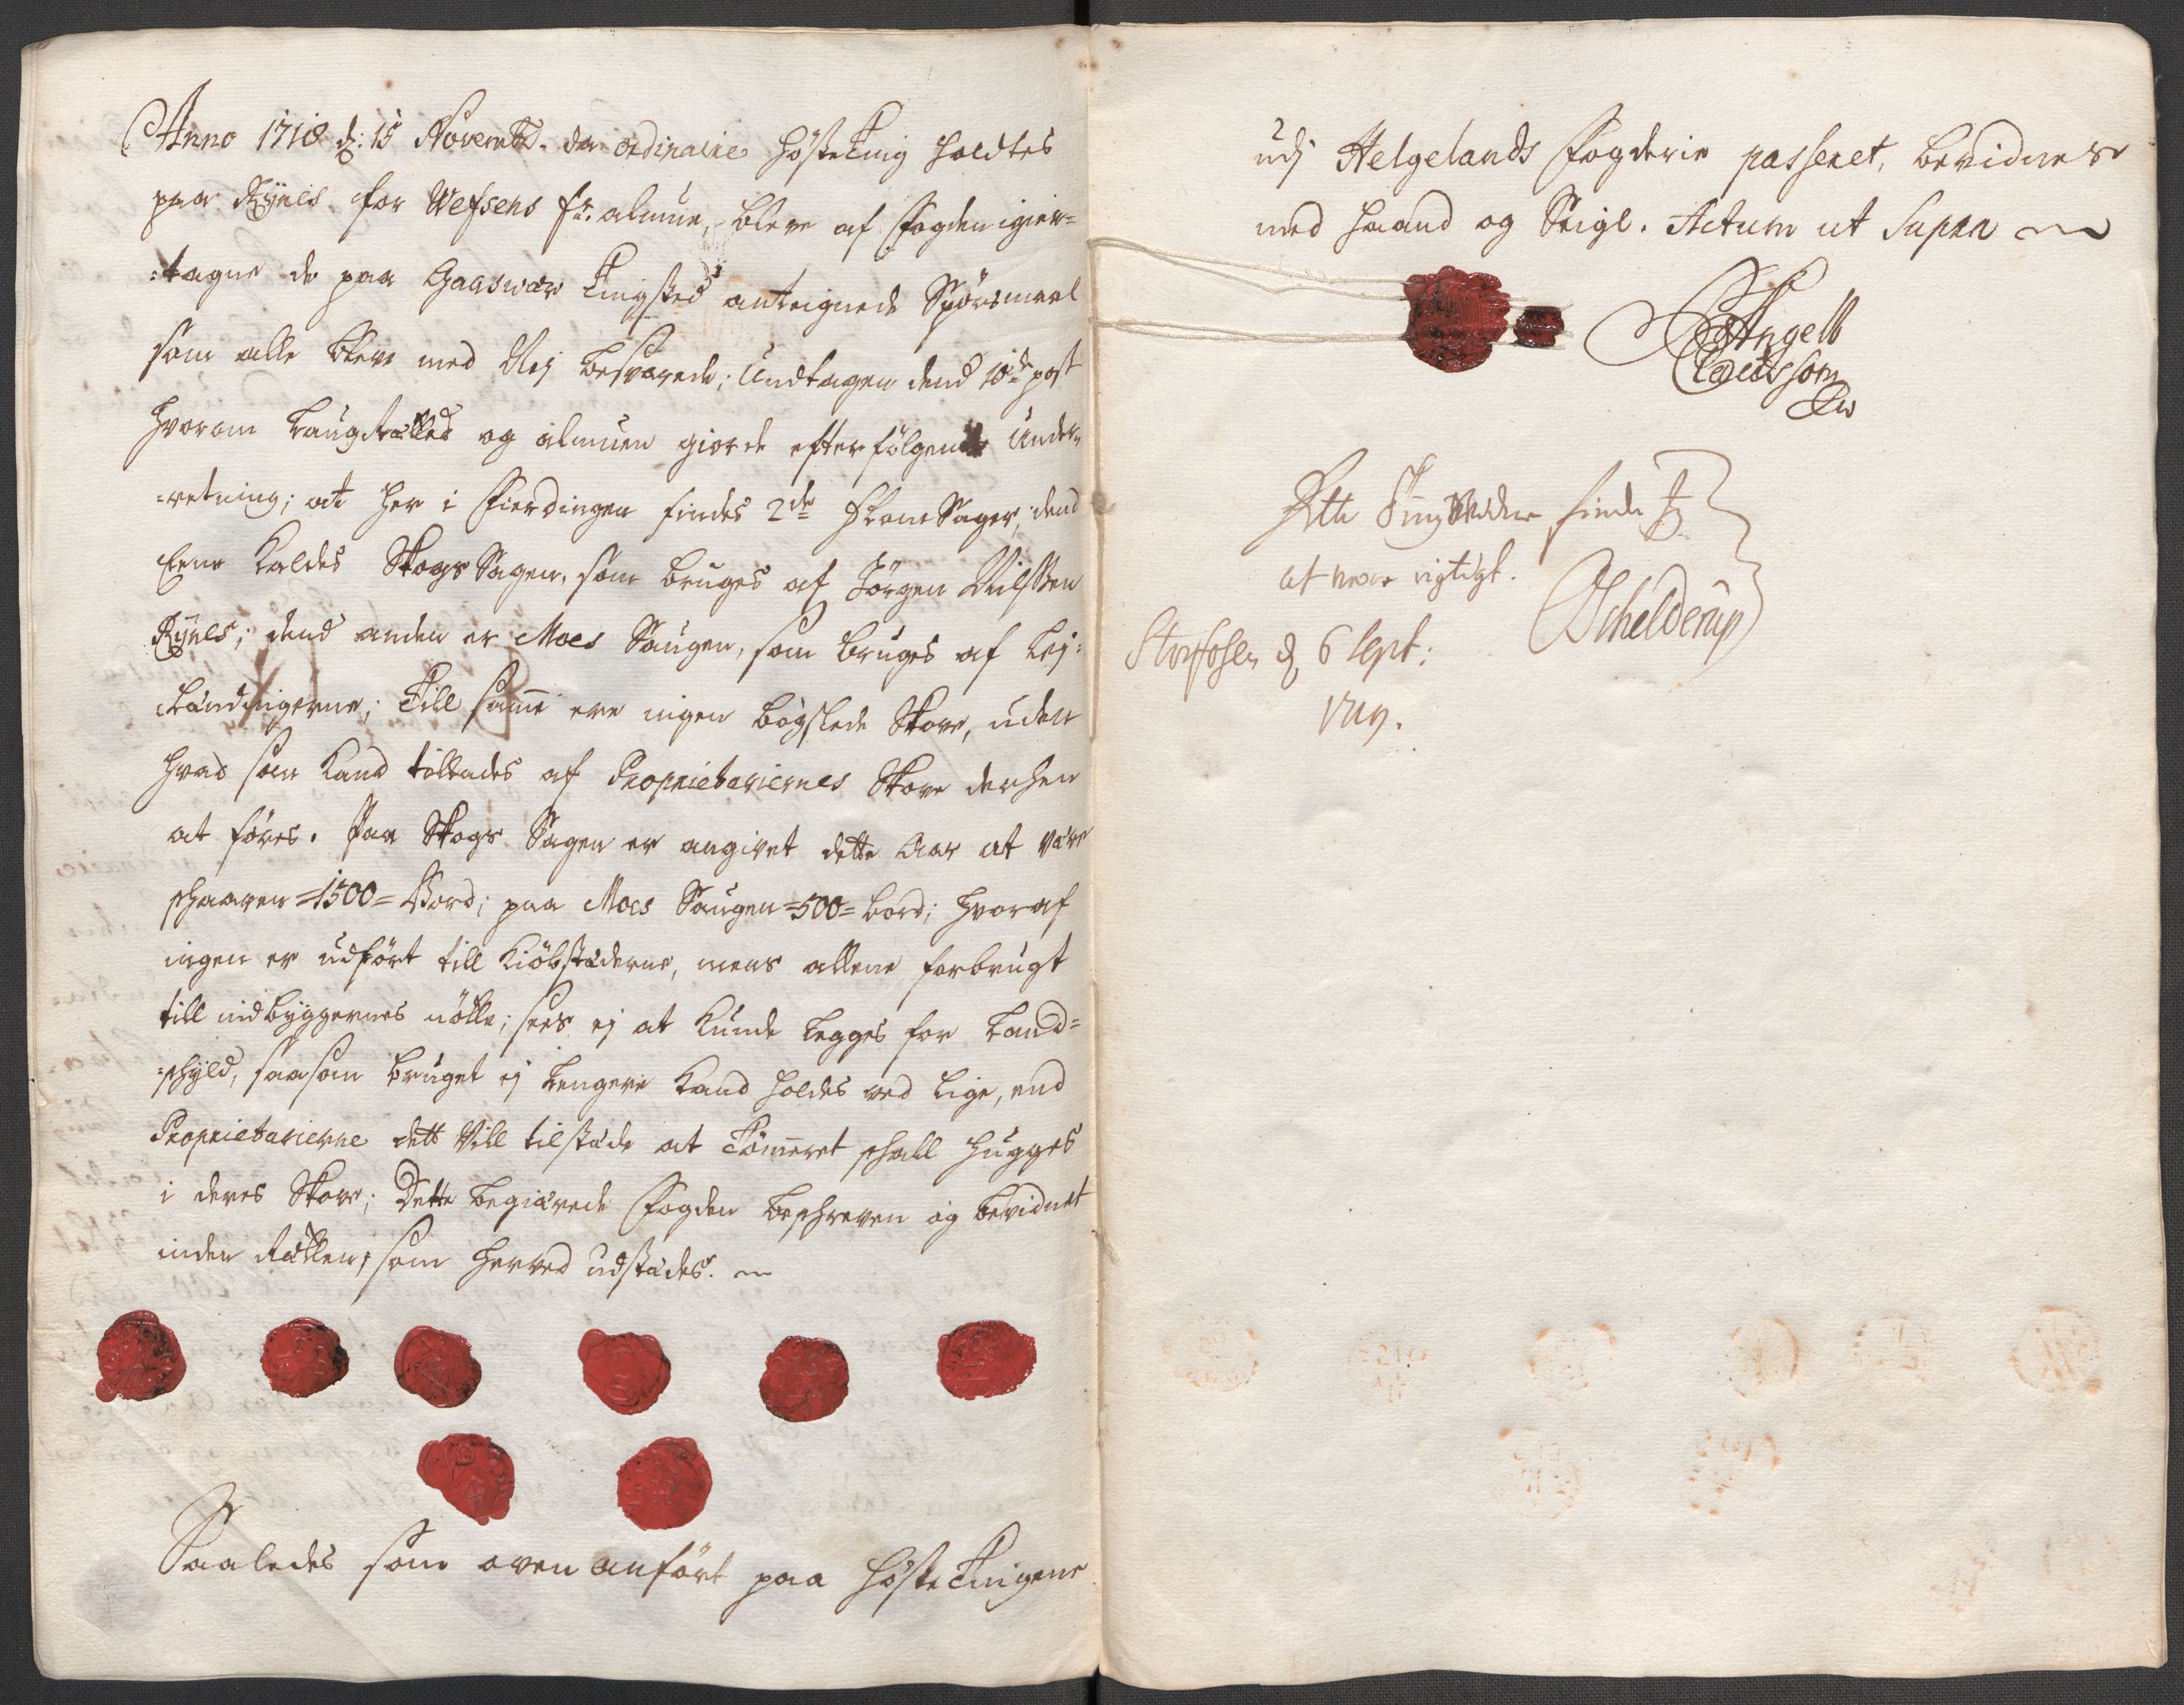 Anno 1718 d: 15 Novembd. da ordinaire Høste Ting holdtes
paa Rÿnes for Wefsens fr. almue, bleve af Fogden igien-
-tagne de paa Gaaswær Tingsted anteignede Spørsmaal
som alle bleve med Nej besvarede; Undtagen dend 10de post
hvorom Laugrættet og almuen giorde efterfølgende Under-
-retning; at her i Fierdingen findes 2de FlomSager, dend
Eene kaldes SkogsSagen, som bruges af Jørgen
Rÿnes; dend anden er Moes Saugen, som bruges af Lej-
lændingerne; Till samme ere ingen bøgslede Skove, uden
hvad som kand tillades af Proprietariernes Skove derhen
at føres. Paa Skogs Sagen er angivet dette Aar at være
skaaren =1500= Bord; paa Moes Saugen =500= bord; hvoraf
ingen er udført till Kiøbstæderne, mens allene forbrugt
till indbyggernes nøtte; sees ej at kunde legges for Land-
-skyld, saasom bruget ej lengere kand holdes ved lige, end
Proprietarierne dett vill tilstæde at Tømmeret skall hugges
i deres Skove; Dette begiærede Fogden beskreven og bevidnet
under Rætten, som herved udstædes.
Saaledes som oven anført paa Høste Tingene
udj Helgelands Fogderie passeret, bevidnes
med Haand og Seigl. Actum ut Supra
Angell
Claussøn
Dette Tingsvidne finde Jeg
at være rigtigt.
Schelderup
Storfosen d 6 Sept:
1719.